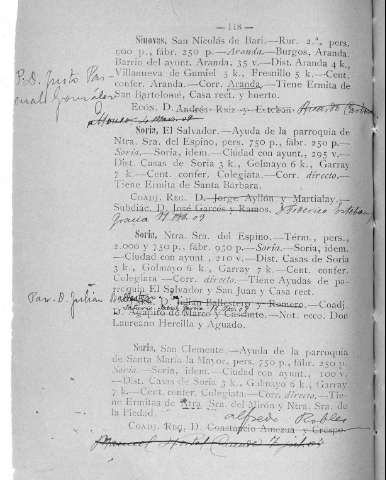 — 118 —
Sinovas, San Nicolás de Bari.—Rur. 2.ª, pers.
900 p., fábr. 250 p.—Aranda.—Burgos, Aranda.
Barrio del ayunt. Aranda, 35 v.—Dist. Aranda 4 k.,
Villanueva de Gumiel 3 k., Fresnillo 5 k.—Cent.
confer. Aranda.—Corr. Aranda.—Tiene Ermita de
San Bartolomé, Casa rect. y huerto.
P.D. Justo Pas-
cual González
Ecón. D. Andrés Ruiz y Esteban
Soria, El Salvador.—Ayuda de la parroquia de
Ntra. Sra. del Espino, pers. 750 p., fábr. 250 p.—
Soria.—Soria, idem.—Ciudad con ayunt., 295 v.—
Dist. Casas de Soria 3 k., Golmayo 6 k., Garray
7 k.—Cent. confer. Colegiata.—Corr. directo.—
Tiene Ermita de Santa Bárbara.
Coadj. Reg. D. Jorge Ayllón y Martialay.—
Subdiác. D. José Garcés y Ramos. Federico Esteban
Gracia
Soria, Ntra. Sra. del Espino.—Térm., pers.
2.000 y 750 p., fábr. 950 p.—Soria.—Soria, idem.
—Ciudad con ayunt., 210 v.—Dist. Casas de Soria
3 k., Golmayo 6 k., Garray 7 k.—Cent. confer.
Colegiata.—Corr. directo.—Tiene Ayudas de pa-
rroquia El Salvador y San Juan y Casa rect.
Par. D. Julián Ballestero y Romero.—Coadj.
D. Agapito de Marco y Casanto.—Not. ecco. Don
Laureano Hercilla y Aguado.
Soria, San Clemente.—Ayuda de la parroquia
de Santa María la Mayor, pers. 750 p., fábr. 250 p.
Soria.—Soria, idem.—Ciudad con ayunt., 100 v.
—Dist. Casas de Soria 3 k., Golmayo 6 k., Garray
7 k.—Cent. confer. Colegiata.—Corr. directo.—Tie-
ne Ermitas de Ntra. Sra. del Mirón y Ntra. Sra. de
la Piedad.
Alfredo Robles
Coadj. Reg. D. Constancio Amezua y Crespo.